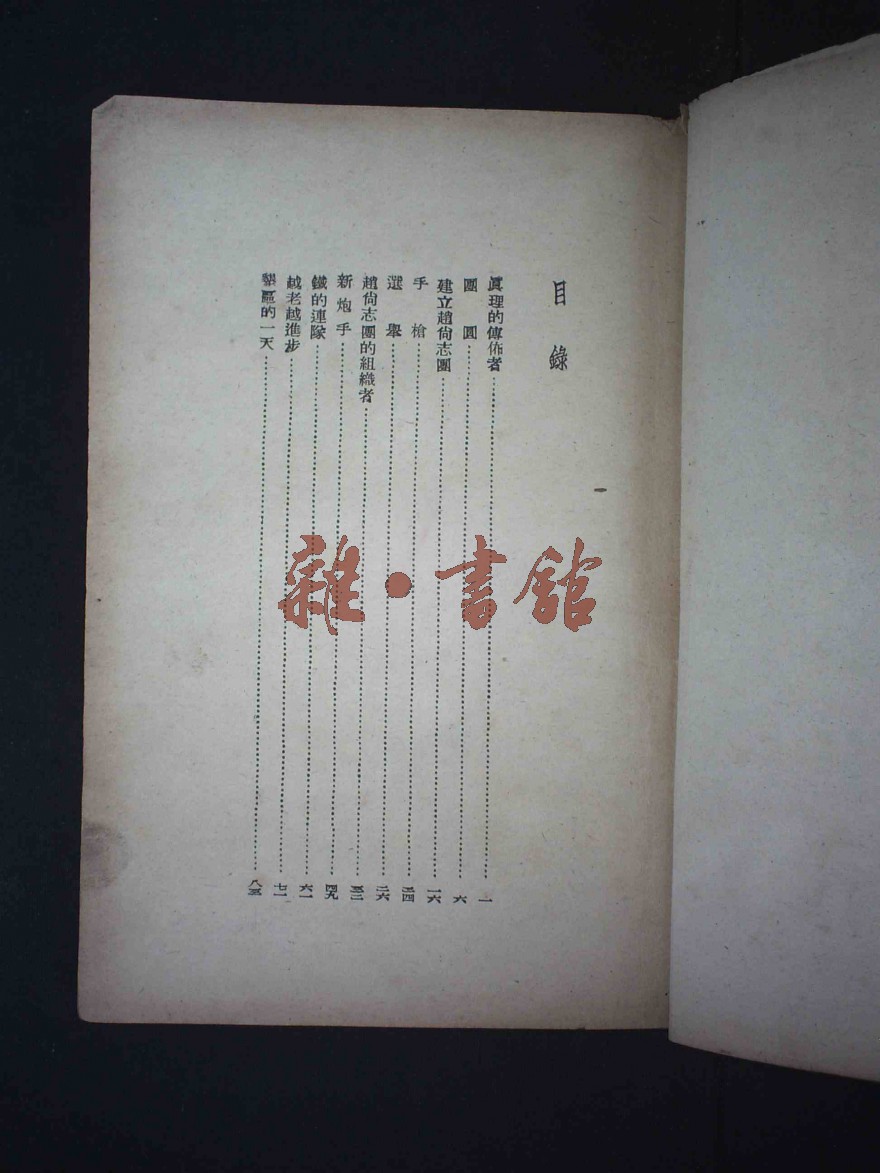 目錄
眞理的傳佈者……一
團圓……六
建立趙尙志團……一六
手槍……二四
選舉……二六
趙尙志團的組織者……三二
新炮手……四九
鐵的連隊……六一
越老越進步……七一
墾區的一天……八三
雜·書館